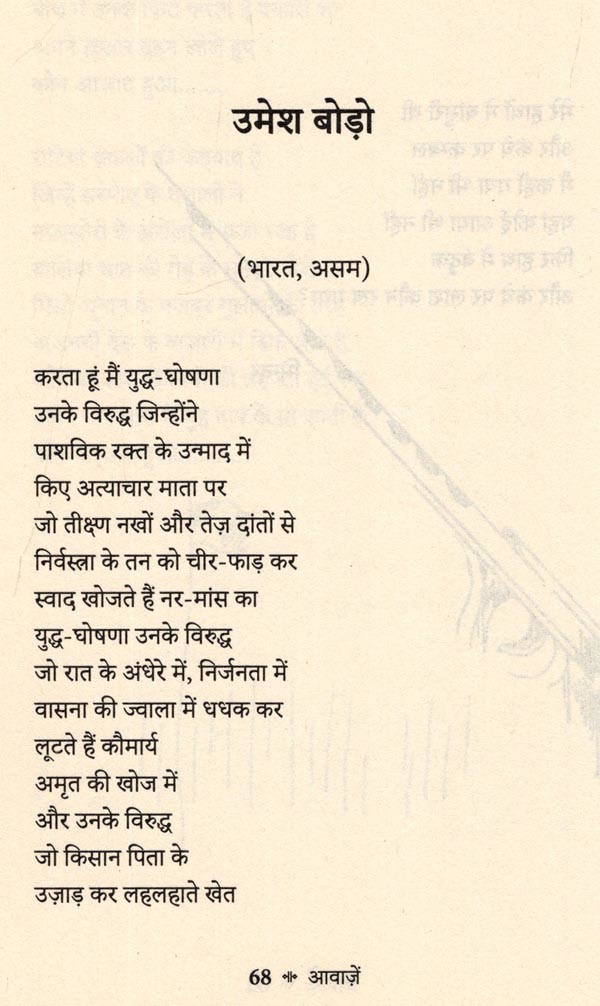 उमेश बोड़ो
(भारत, असम)
करता हूं मैं युद्ध-घोषणा
उनके विरुद्ध जिन्होंने
पाशविक रक्त के उन्माद में
किए अत्याचार माता पर
जो तीक्ष्ण नखों और तेज़ दांतों से
निर्वस्त्रा के तन को चीर-फाड़ कर
स्वाद खोजते हैं नर-मांस का
युद्ध-घोषणा उनके विरुद्ध
जो रात के अंधेरे में, निर्जनता में
वासना की ज्वाला में धधक कर
लूटते हैं कौमार्य
अमृत की खोज में
और उनके विरुद्ध
जो किसान पिता के
उज़ाड़ कर लहलहाते खेत
68 आवाज़ें